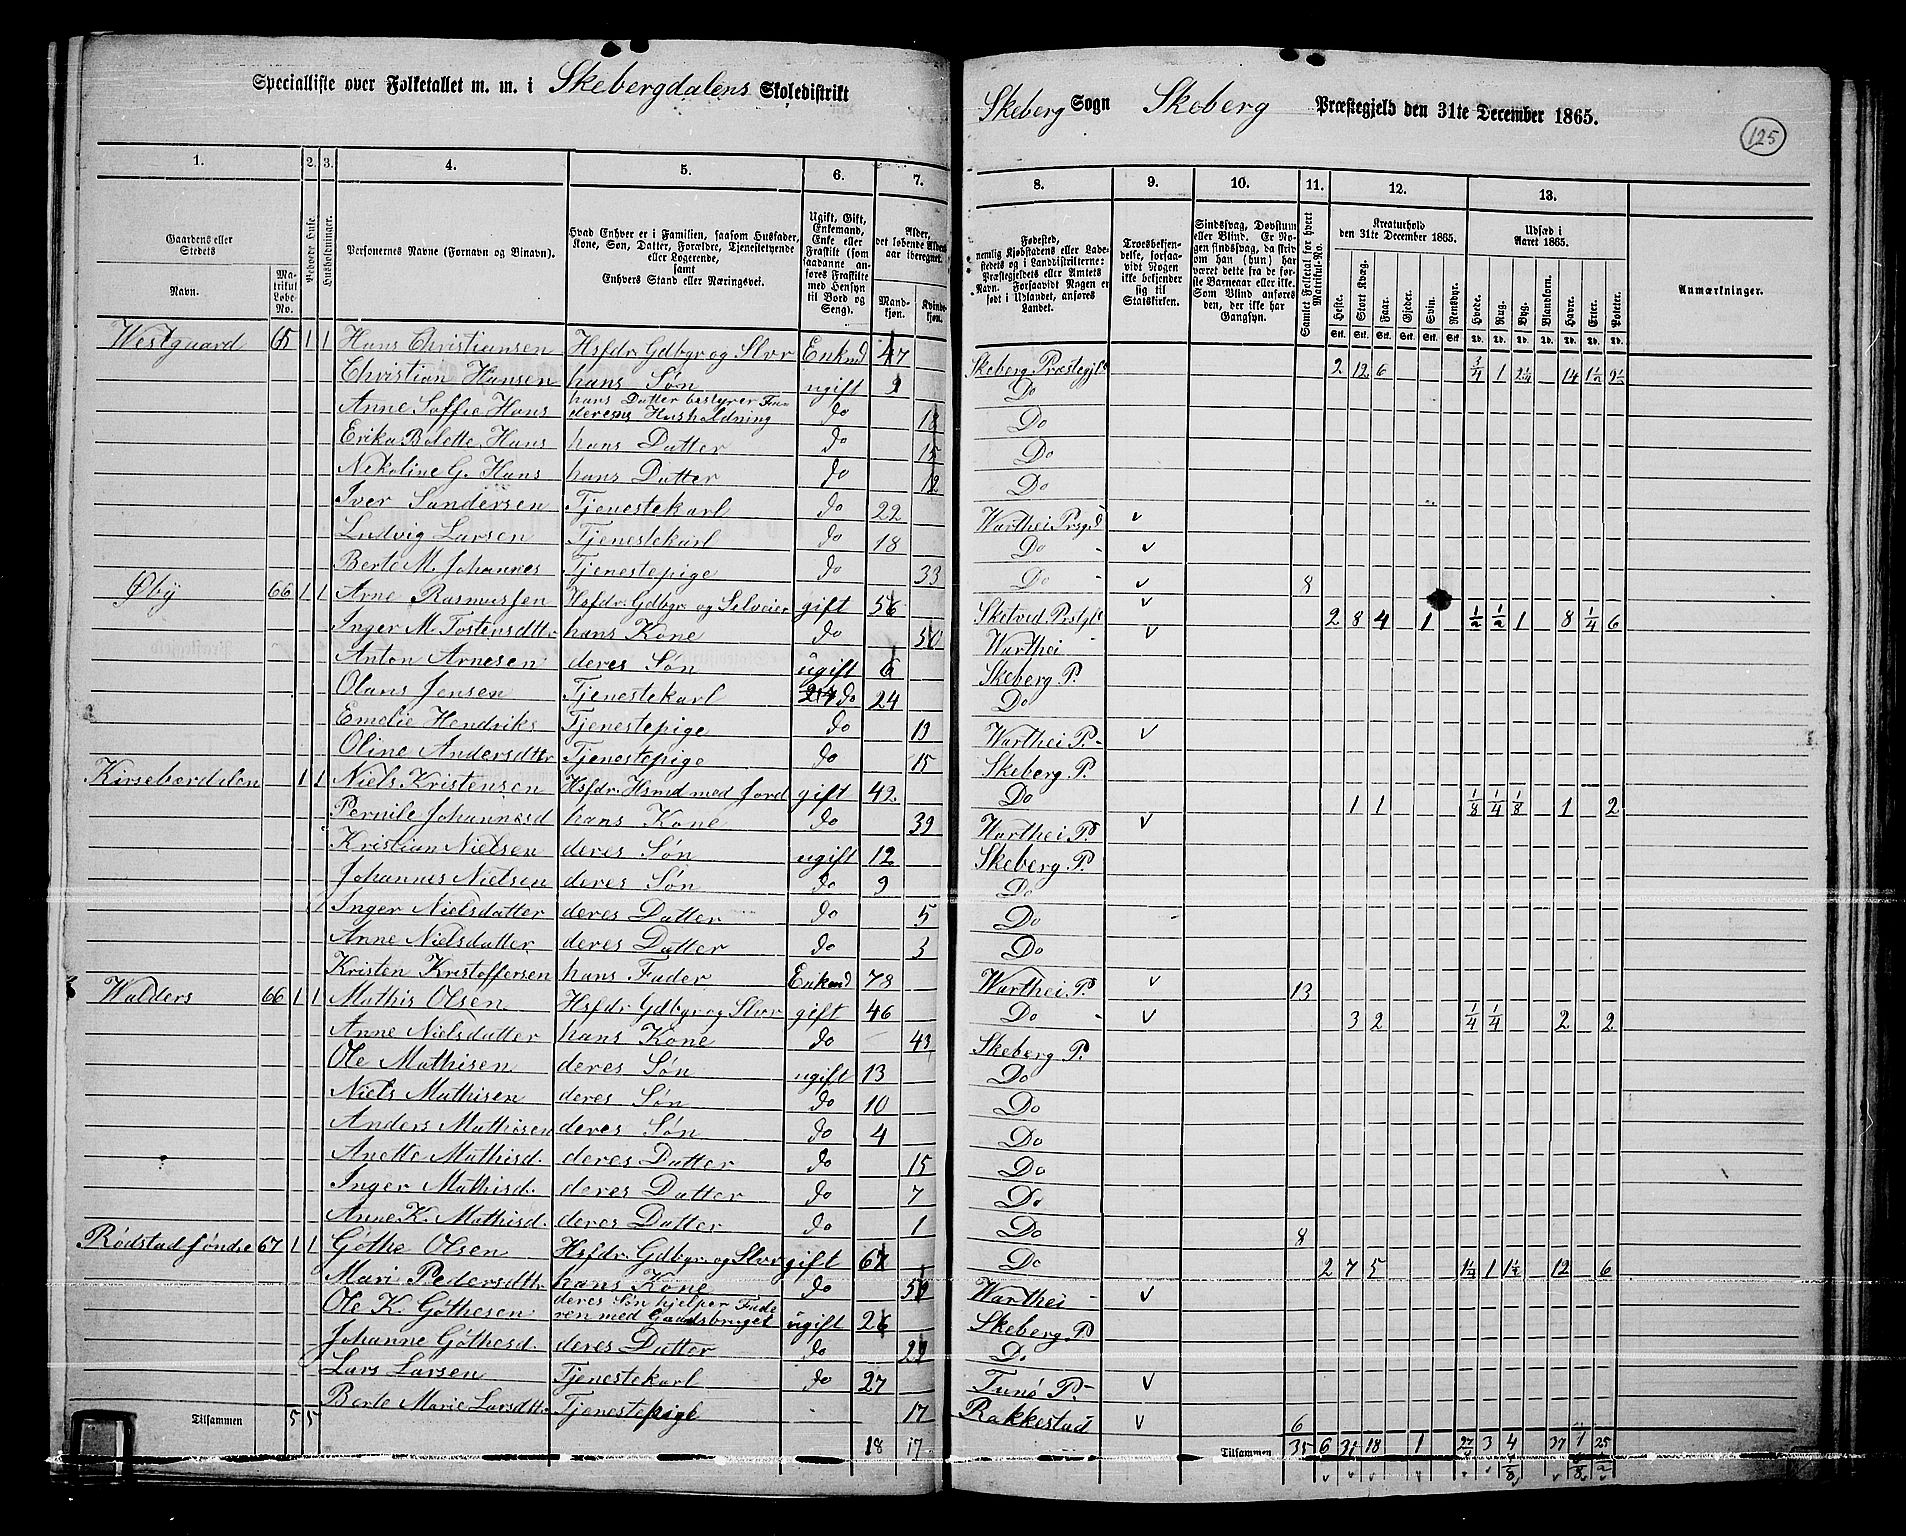 Specialliste over Folketallet m. m. i Skebergdalens Skoledistrikt
Skeberg Sogn Skeberg Præstegjeld den 31te December 1865.
125
1. 2. 3. 4. 5. 6. 7. 8. 9. 10. 11. 12. 13.
Gaardens eller Stedets
Navn.
Matrikul Løbe-No.
Beboede Huse.
Husholdninger.
Personernes Navne (Fornavn og Binavn).
Hvad Enhver er i Familien, saasom Husfader, Kone, Søn, Datter, Forældre, Tjenestetyende eller Logerende, samt Enhvers Stand eller Næringsvei.
Ugift, Gift, Enkemand, Enke eller Fraskilt (som saadanne anføres Fraskilte med Hensyn til Bord og Seng).
Alder, det løbende Alders-aar iberegnet.
Mandkjøn. Kvindekjøn.
Fødested, nemlig Kjøbstadens eller Ladestedets og i Landdistrikterne: Præstegjeldets eller Amtets Navn. Forsaavidt Nogen er født i Udlandet, anføres Landet.
Troesbekjendelse, forsaavidt Nogen ikke bekjender sig til Statskirken.
Sindssvag, Døvstum eller Blind. Er Nogen sindssvag, da skrives om han (hun) har været dette fra de første Barneaar eller ikke. Som Blind anføres den, der ikke har Gangsyn.
Samlet Folketal for hvert Matrikul-No.
Kreaturhold den 31te December 1865.
Heste. Stort Kvæg. Faar. Gjeder. Svin. Rensdyr.
Udsæd i Aaret 1865.
Hvede. Rug. Byg. Blandkorn. Havre. Erter. Poteter.
Anmærkninger.
Westgaard 65 1 1 Hans Christiansen Hsfdr. Gdbgr og Slvr Enkmd 47 Skeberg Præstegjld 2 12 6 3/4 1 2 1/4 14 1 1/2 9 1/2
Christian Hansen hans Søn ugift 9 Do
Anne Soffie Hans hans Datter bestyrer Faderens Husholdning do 18 Do
Erika Bolette Hans hans Datter do 15 Do
Nikoline G. Hans hans Datter do 12 Do
Iver Sandersen Tjenestekarl do 22 Warthei Prsgd v
Ludvig Larsen Tjenestekarl do 18 Do v
Berte M. Johannes Tjenestepige do 33 Do v 8
Øby 66 1 1 Arne Rasmussen Hsfdr. Gdbgr. og Selveier gift 56 Sketved Prstgld v 2 8 4 1 1/2 1/2 1 8 1/4 6
Inger M. Tostensdttr hans Kone do 50 Warthei v
Anton Arnesen deres Søn ugift 6 Skeberg P.
Olaus Jensen Tjenestekarl do 24 Do
Emelie Hendriks Tjenestepige do 13 Warthei P. v
Oline Andersdttr Tjenestepige do 15 Skeberg P.
1 1 Niels Kristensen Hsfdr. Hsmd med Jord gift 42 Do 1 1 1/8 1/4 1/8 1 2
Pernile Johannesd hans Kone do 39 Warthei P. v
Kristian Nielsen deres Søn ugift 12 Skeberg P.
Johannes Nielsen deres Søn do 9 Do
Inger Nielsdatter deres Datter do 5 Do
Anne Nielsdatter deres Datter do 3 Do
Kristen Kristoffersen hans Fader Enkmd 78 Warthei P. v 13
Walders 66 1 1 Mathis Olsen Hsfdr. Gdbgr og Slvr gift 46 Do v 3 2 1/4 1/4 2 2
Anne Nielsdatter hans Kone do 43 Skeberg P.
Ole Mathisen deres Søn ugift 13 Do
Niels Mathisen deres Søn do 10 Do
Anders Mathisen deres Søn do 4 Do
Anette Mathisd. deres Datter do 15 Do
Inger Mathisd. deres Datter do 7 Do
Anne K. Mathisd. deres Datter do 1 Do 8
Rødstad søndre 67 1 1 Gøthe Olsen Hsfdr. Gdbgr. og Slvr gift Do 2 7 5 1 1/4 1 1 1/2 12 6
Mari Pedersdttr hans Kone do Warthei v
Ole K. Gøthesen deres Søn hjelper Faderen med Gaardsbruget ugift 26 Skeberg P
Johanne Gøthesd. deres Datter do 22 D.
Lars Larsen Tjenestekarl do 27 Tunø P. v
Berte Marie Larsdttr. Tjenestepige 17 Rakkestad v 6
Tilsammen 5 5 18 17 Tilsammen 35 6 31 18 1 3 37